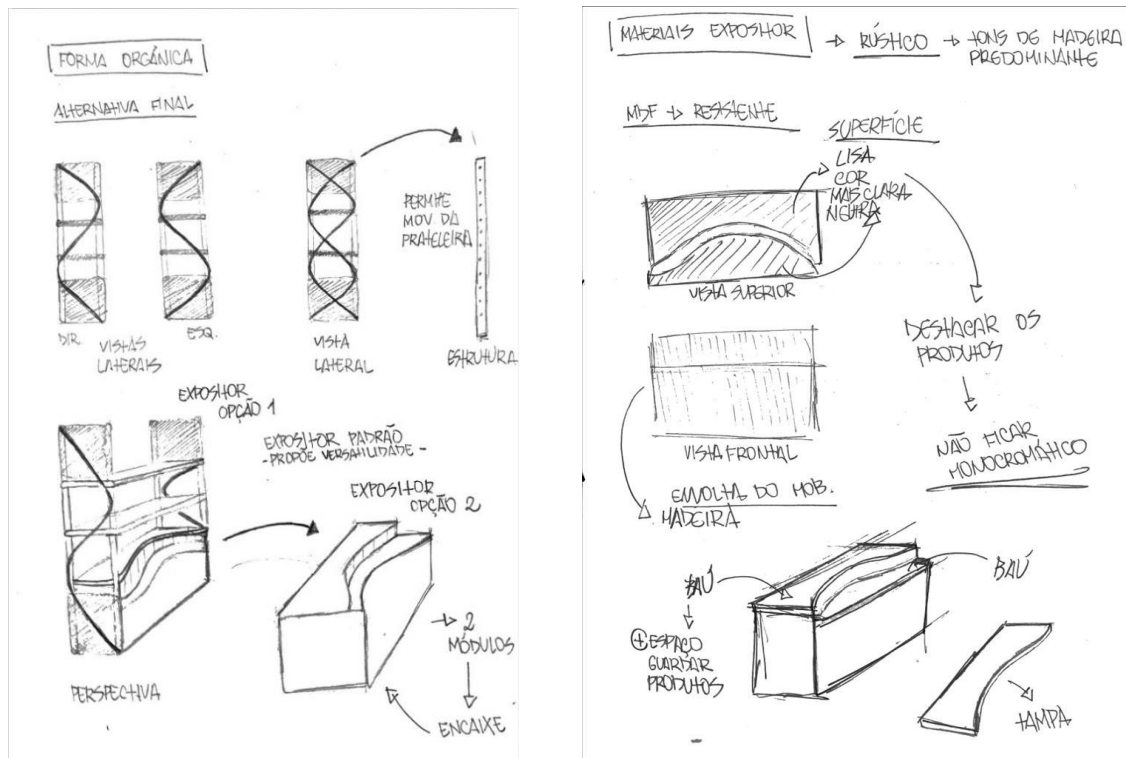 FORMA ORGÂNICA
ALTERNATIVA FINAL
DIR.
VISTAS
LATERAIS
ESQ.
VISTA
LATERAL
PERMITE
MOV. DA
PRATELEIRA
ESTRUTURA
EXPOSITOR
OPÇÃO 1
EXPOSITOR PADRÃO
- PROPÕE VERSATILIDADE -
EXPOSITOR
OPÇÃO 2
→ 2
MÓDULOS
ENCAIXE
PERSPECTIVA
MATERIAIS EXPOSITOR → RÚSTICO → TONS DE MADEIRA
PREDOMINANTE
MDF → RESISTENTE
SUPERFÍCIE
LISA
COR
MAIS CLARA
NEUTRA
VISTA SUPERIOR
DESTACAR OS
PRODUTOS
NÃO FICAR
MONOCROMÁTICO
VISTA FRONTAL
ENVOLTA DO MOB.
MADEIRA
BAÚ
+ ESPAÇO
GUARDAR
PRODUTOS
BAÚ
TAMPA